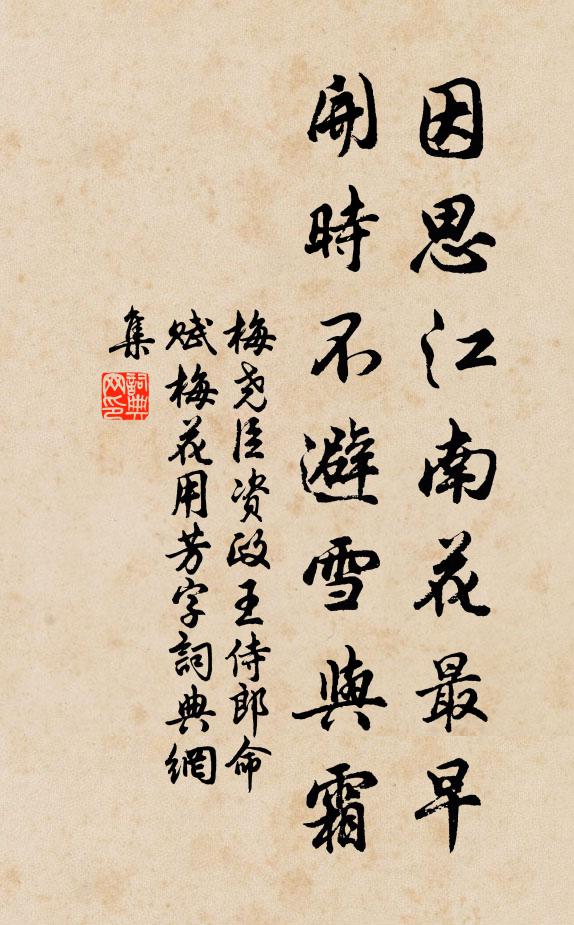 因思江南花最早
開時不避雪與霜
梅尧臣资政王侍郎命
赋梅花用芳字詞典網
集
詞典
网印